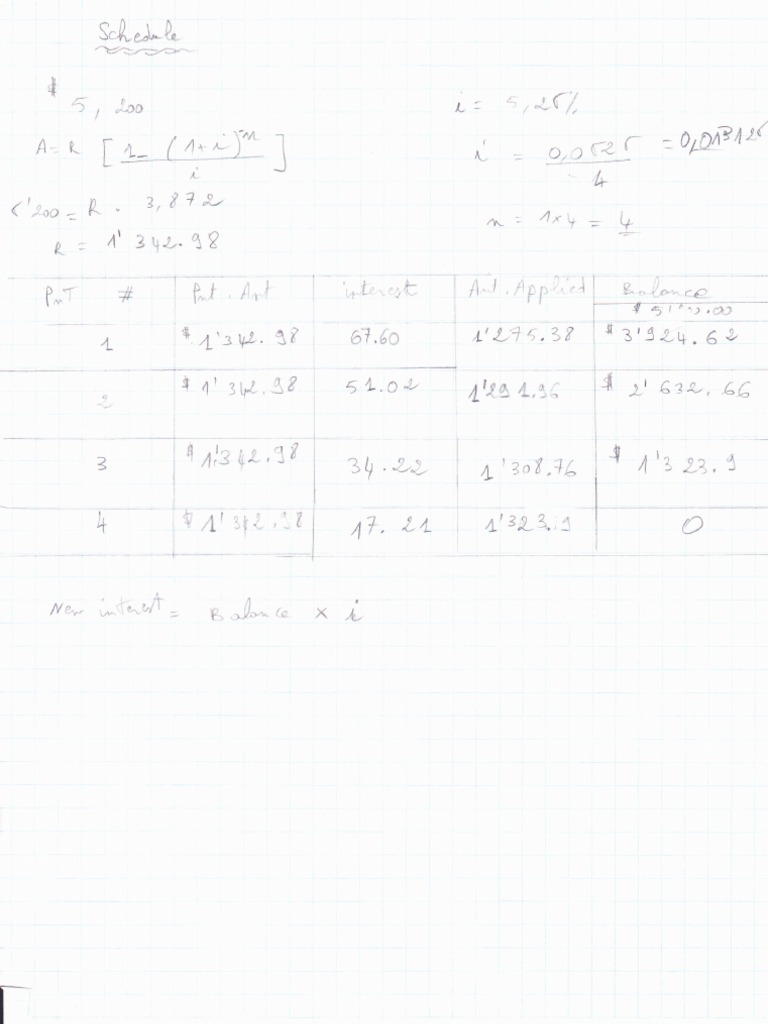 Schedule
$ 5, 200
i = 5,25%
A = R [ 1 - (1+i)^-n / i ]
i = 0,0525 / 4 = 0,013125
5'200 = R . 3,872
n = 1x4 = 4
R = 1'342.98
PmT # Pmt. Amt interest Amt. Applied Balance
1 $ 1'342.98 67.60 1'275.38 $ 3'924.62
2 $ 1'342.98 51.02 1'291.96 $ 2'632.66
3 $ 1'342.98 34.22 1'308.76 $ 1'323.9
4 $ 1'342.98 17.21 1'323.9 0
New interest = Balance x i